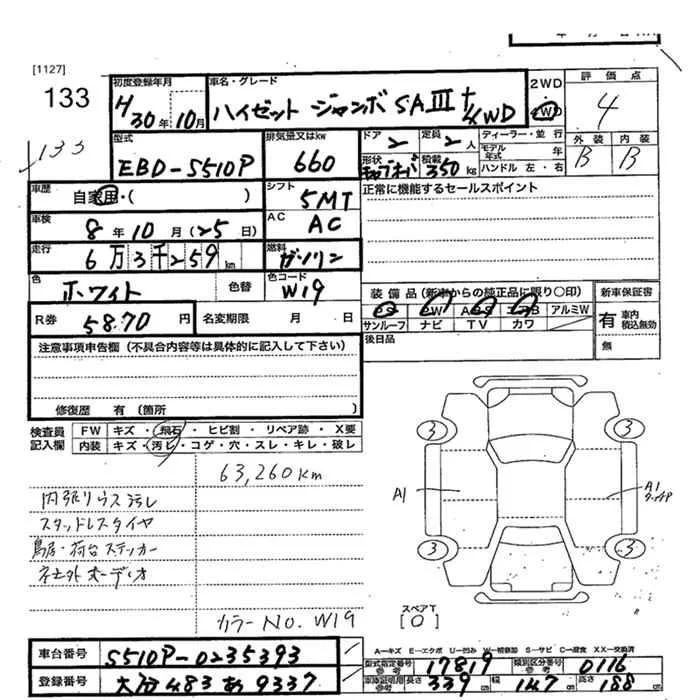 [1127]
133
133
初度登録年月
H30年10月
車名・グレード
ハイゼット ジャンボ SAⅢt 4WD
2WD
4WD
評価点
4
外装 内装
B B
型式
EBD-S510P
排気量又はkw
660
ドア
2
定員
2人
形状
積載
350kg
ディーラー・並行
モデル年式 年
ハンドル 左・右
車歴
自家用・( )
シフト
5MT
正常に機能するセールスポイント
車検
8年10月(25日)
AC
AC
走行
6万3千259km
燃料
ガソリン
色
ホワイト
色替
色コード
W19
R券
58.70円
名変期限 月 日
装備品(新車からの純正品に限り○印)
PS PW ABS エアB アルミW
サンルーフ ナビ TV カワ
後日品
新車保証書
有 車内積込無効
無
注意事項申告欄(不具合内容等は具体的に記入して下さい)
修復歴 有(箇所
検査員記入欄
FW キズ・飛石・ヒビ割・リペア跡・X要
内装 キズ・汚レ・コゲ・穴・スレ・キレ・破レ
63,260km
内張りウス汚レ
スタッドレスタイヤ
鳥居・荷台ステッカー
社外オーディオ
カラーNo. W19
3 3
A1
A1
タッチP
3 3
スペアT
[0]
車台番号
S510P-0235393
登録番号
大分483あ9337
A-キズ E-エクボ U-凹み W-補修跡 S-サビ C-腐食 XX-交換済
型式指定番号
17819
類別区分番号
0116
車庫証明用 長さ
339cm
幅
147cm
高さ
188cm